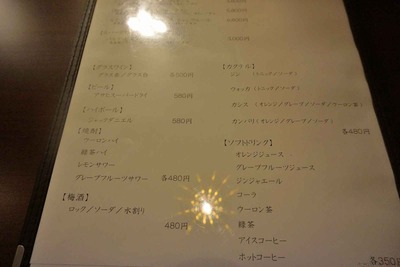 【グラスワイン】
グラス赤/グラス白 各500円
【ビール】
アサヒスーパードライ 580円
【ハイボール】
ジャックダニエル 580円
【焼酎】
ウーロンハイ
緑茶ハイ
レモンサワー
グレープフルーツサワー 各480円
【梅酒】
ロック/ソーダ/水割り
480円
【カクテル】
ジン (トニック/ソーダ)
ウォッカ (トニック/ソーダ)
カシス (オレンジ/グレープ/ソーダ/ウーロン茶)
カンパリ (オレンジ/グレープ/ソーダ)
各480円
【ソフトドリンク】
オレンジジュース
グレープフルーツジュース
ジンジャエール
コーラ
ウーロン茶
緑茶
アイスコーヒー
ホットコーヒー
各350円